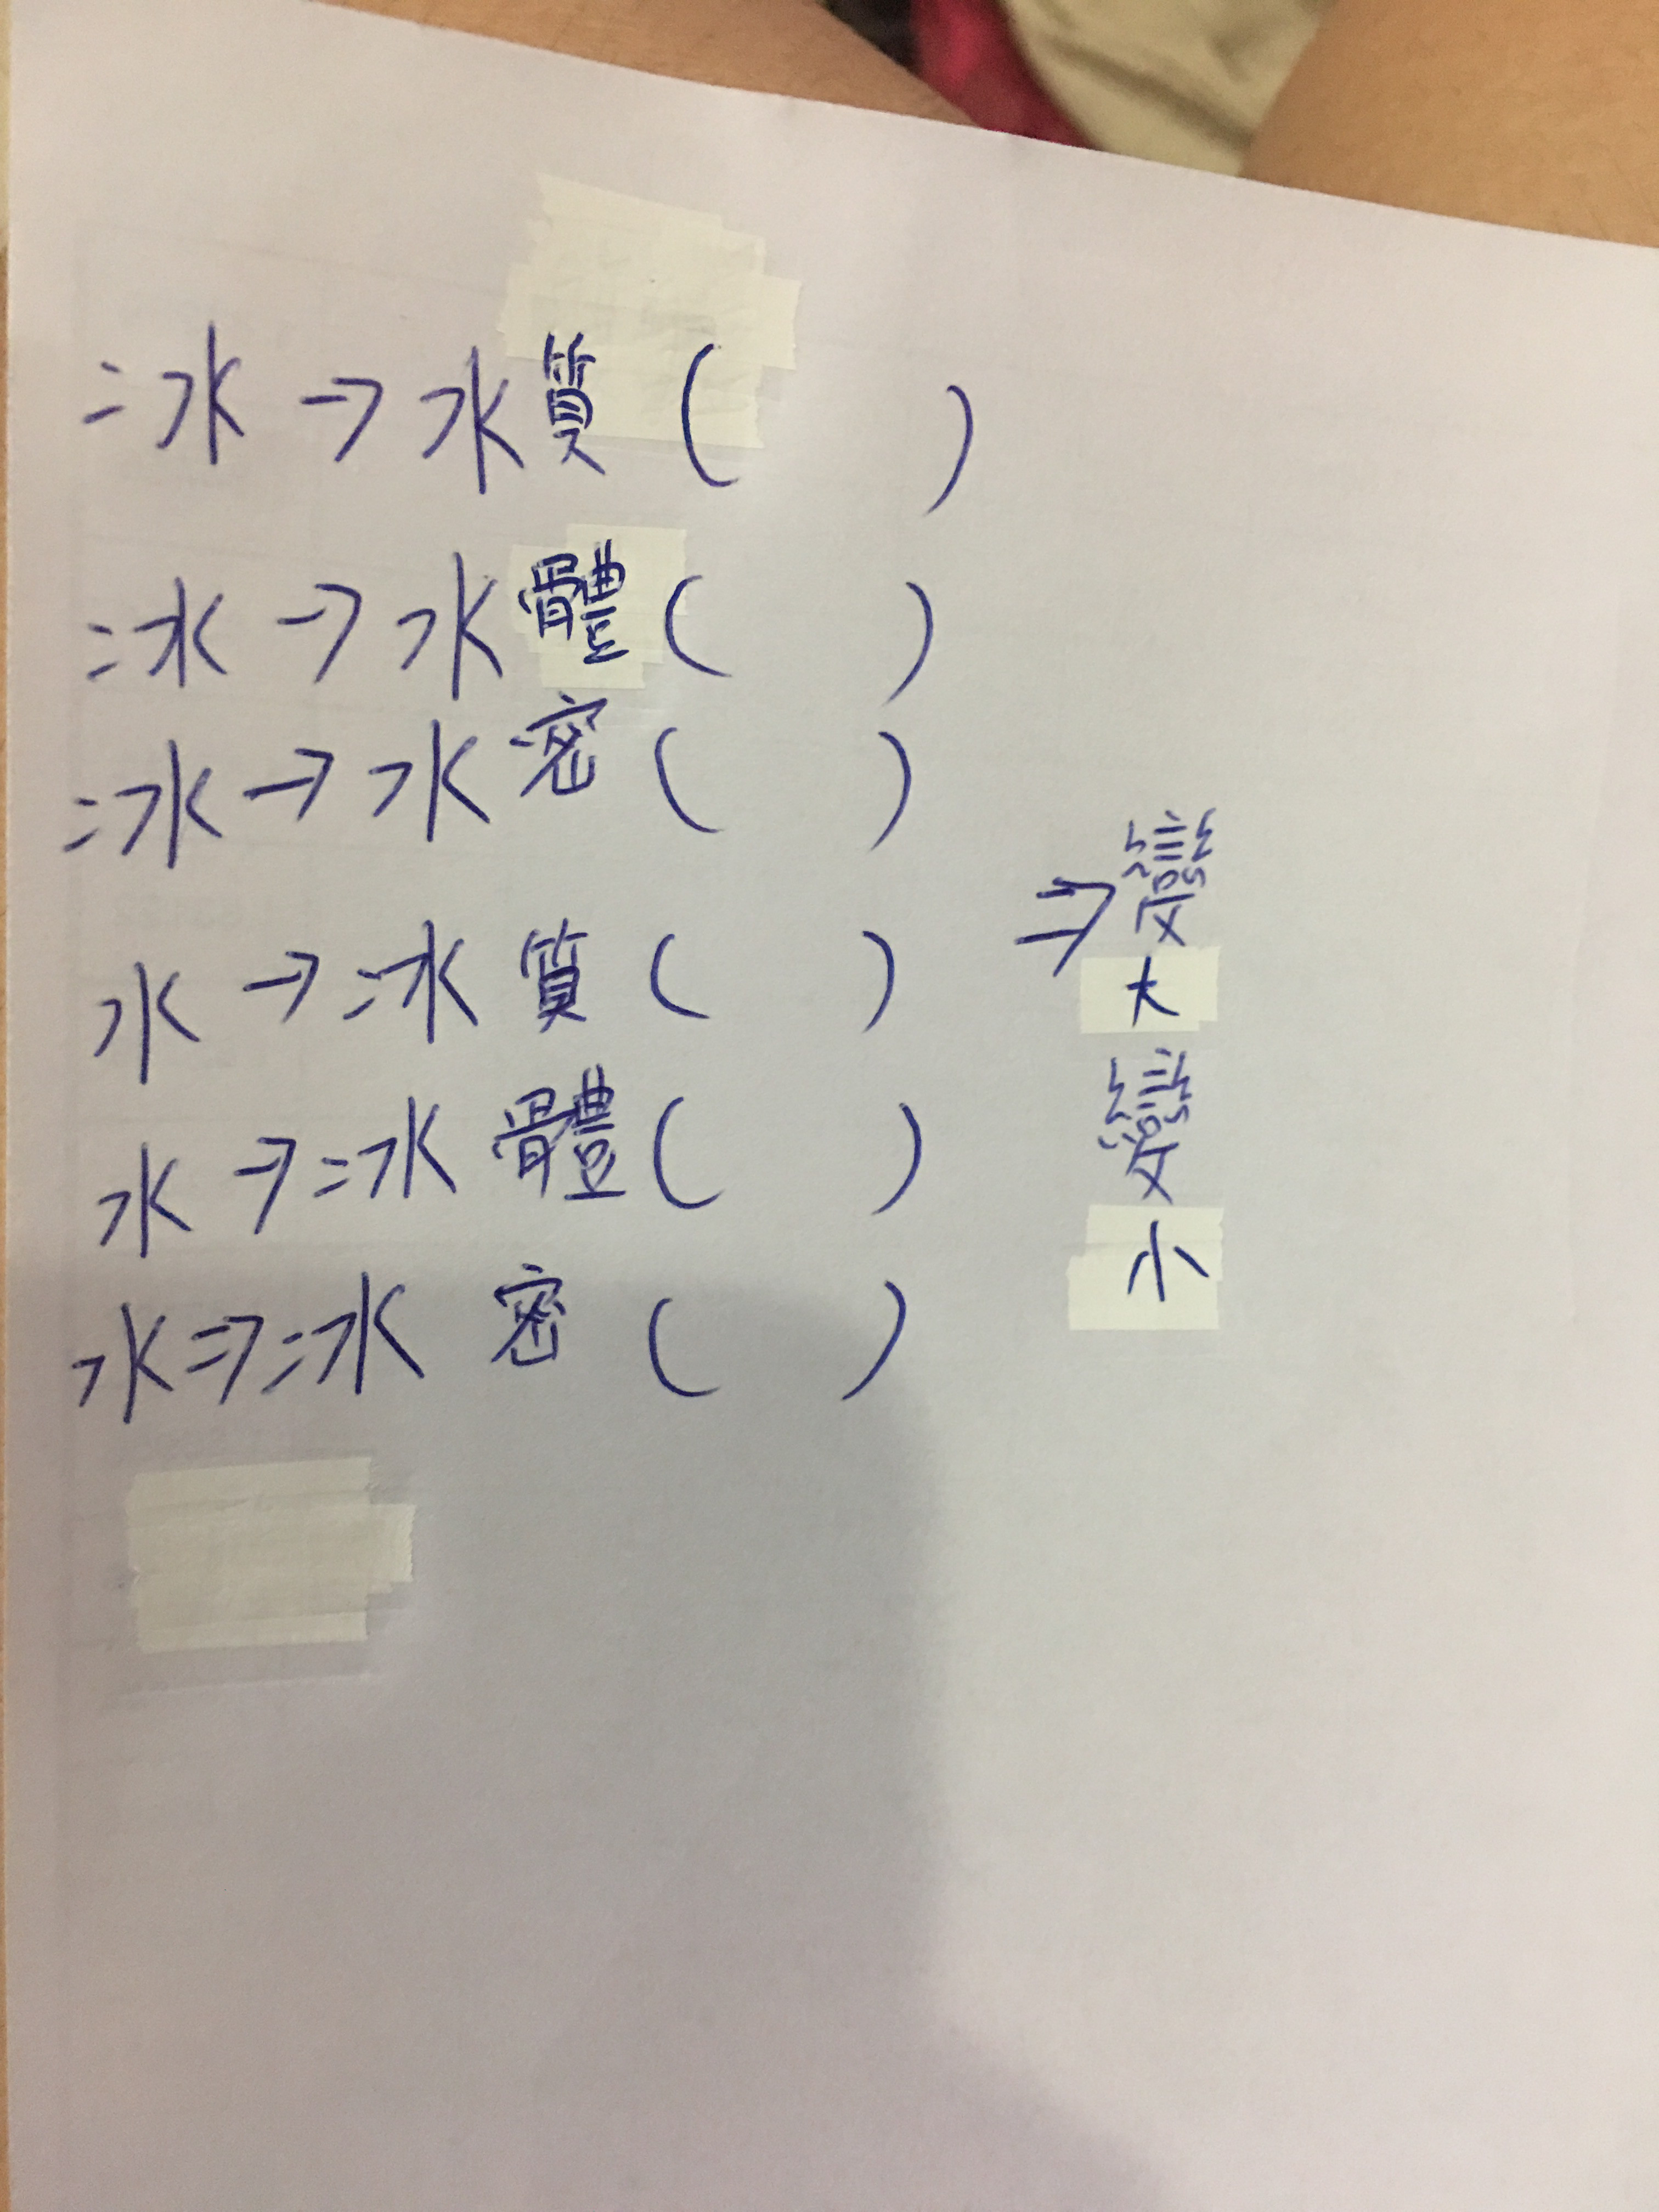 冰→水質(　　)
冰→水體(　　)
冰→水密(　　)
水→冰質(　　)
水→冰體(　　)
水⇒冰密(　　)
⇒變大
變小